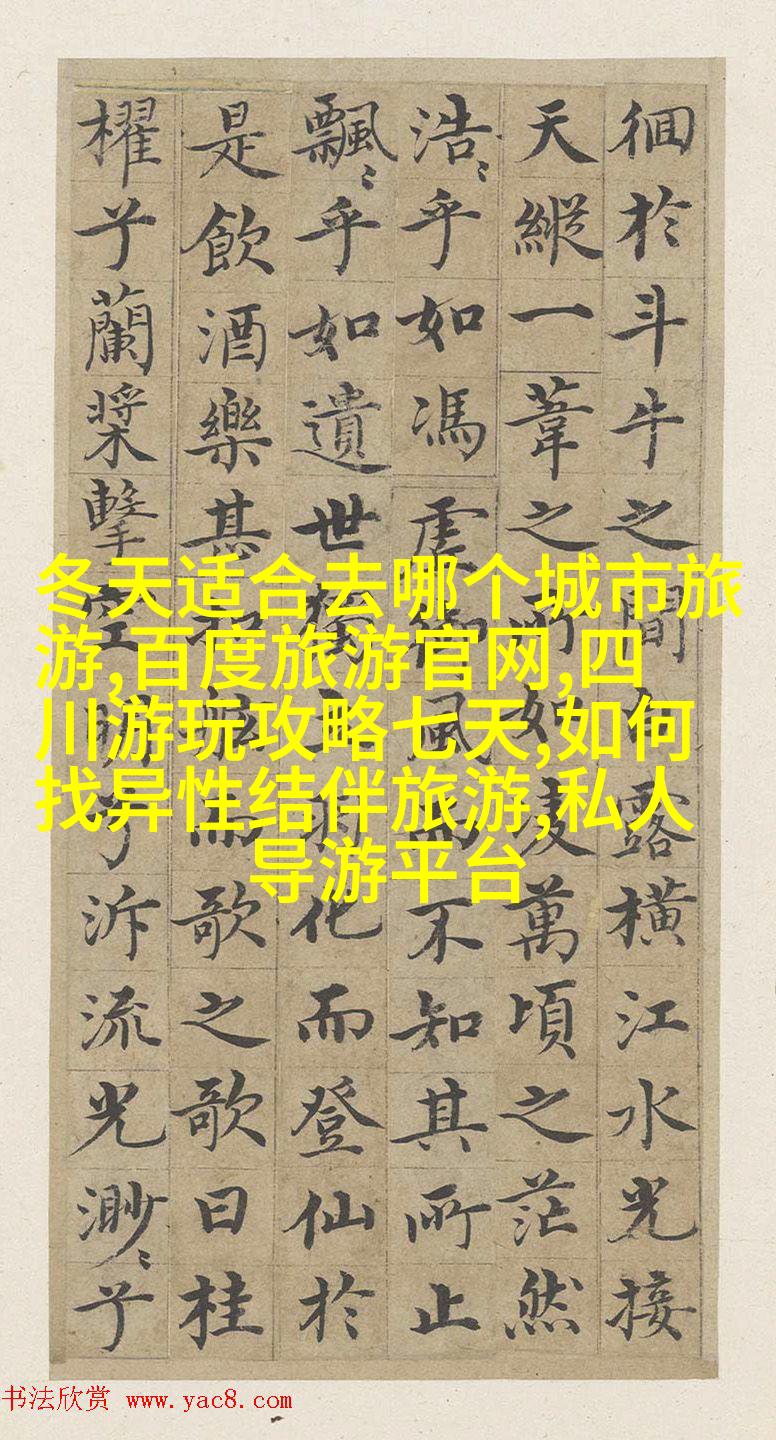 徊於斗牛之間白露橫江水光接
天縱一葦之所如凌萬頃之茫然
浩〻乎如馮虛御風而不知其所止
飄〻乎如遺世獨立羽化而登仙於
是飲酒樂甚扣舷而歌之歌曰桂
櫂兮蘭槳擊空明兮泝流光渺〻兮
冬天适合去哪个城市旅
游,百度旅游官网,四
川游玩攻略七天,如何
找异性结伴旅游,私人
导游平台
书法欣赏 www.yac8.com